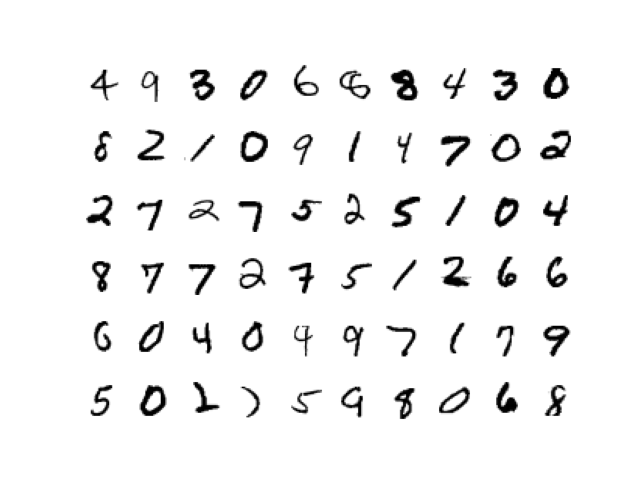 4 9 3 0 6 8 8 4 3 0
8 2 1 0 9 1 4 7 0 2
2 7 2 7 5 2 5 1 0 4
8 7 7 2 7 5 1 2 6 6
6 0 4 0 4 9 7 1 7 9
5 0 2 5 9 8 0 6 8